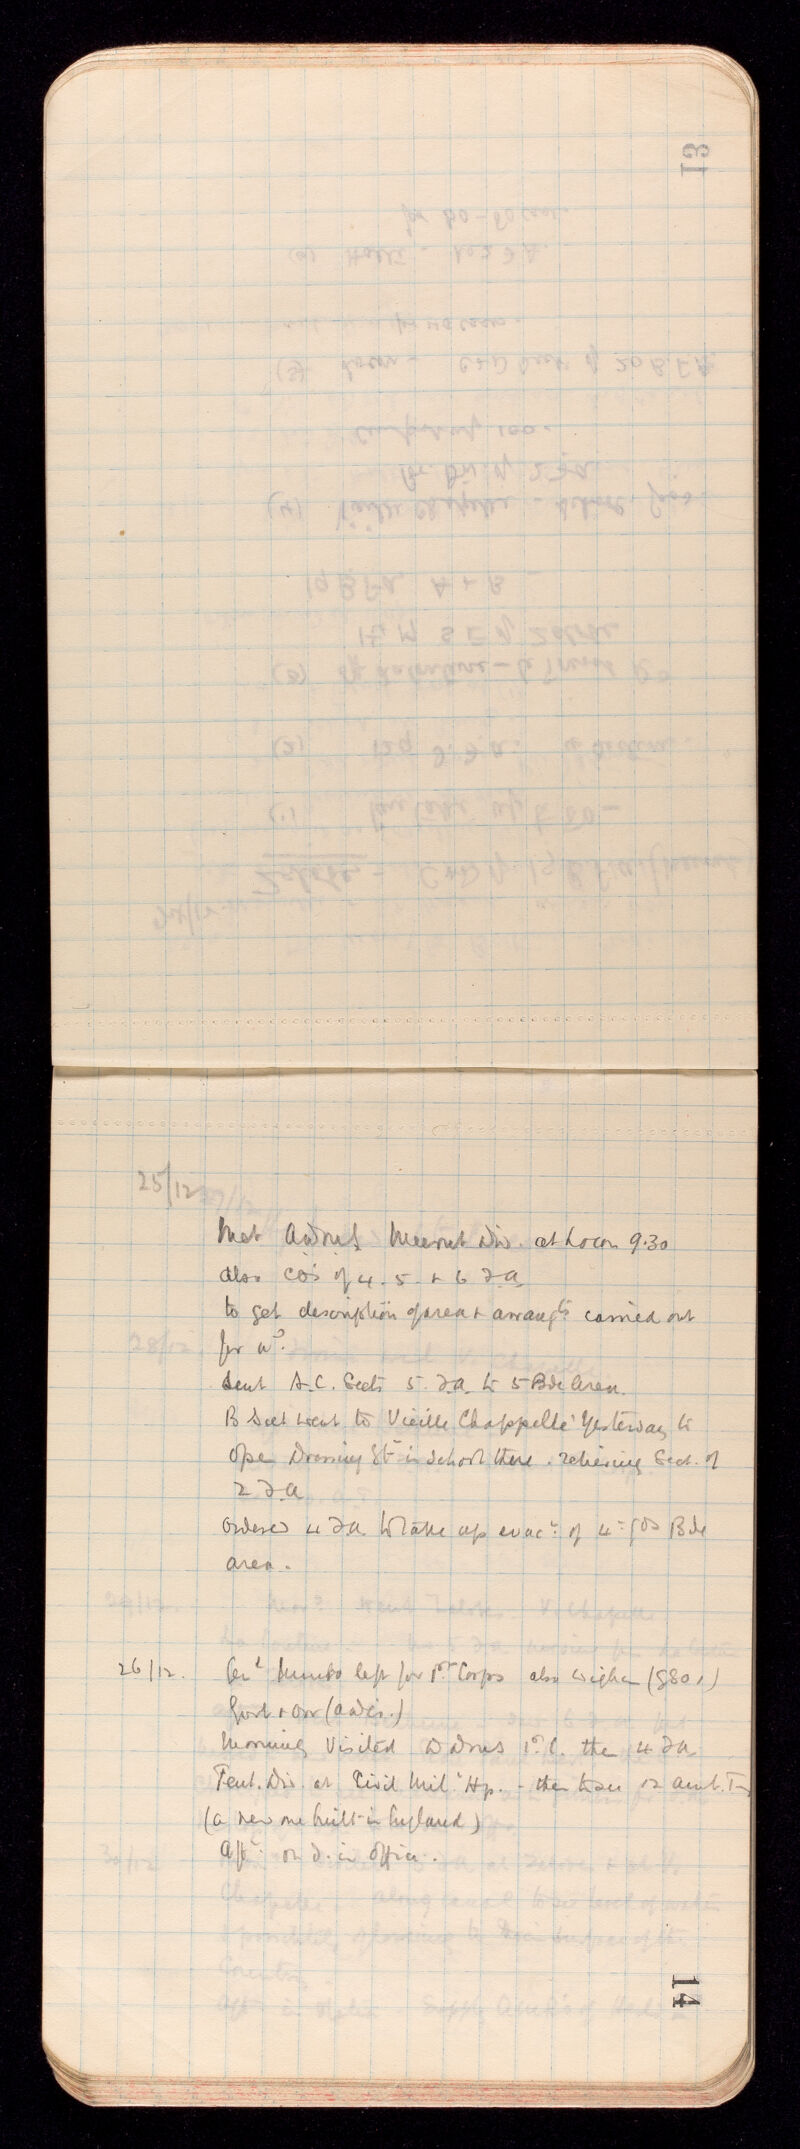 13
25/12
Met ADMS Meerut Div. at Locon 9.30
also COs of 4. 5. + 6 F.A.
to get description of area + arrangts carried out
for wd.
Sent A.C. Sects 5. F.A. to 5 Bde Area.
B Sect went to Vieille Chappelle yesterday to
open Dressing Stn in School there. relieving Sect. of
2 F.A
Ordered 4 F.A. to take up evacn: of 4th Gds Bde
area.
26/12. Genl Munro left for 1st Corps also (GSO1)
Gort + Orr (ADCs.)
Morning Visited DDMS 1st C. then 4 F.A.
Tent. Div. at Civil Mil. Hp. - then to see 12 Amb. T
(a new one built in England)
Aftn: on d. in office.
14